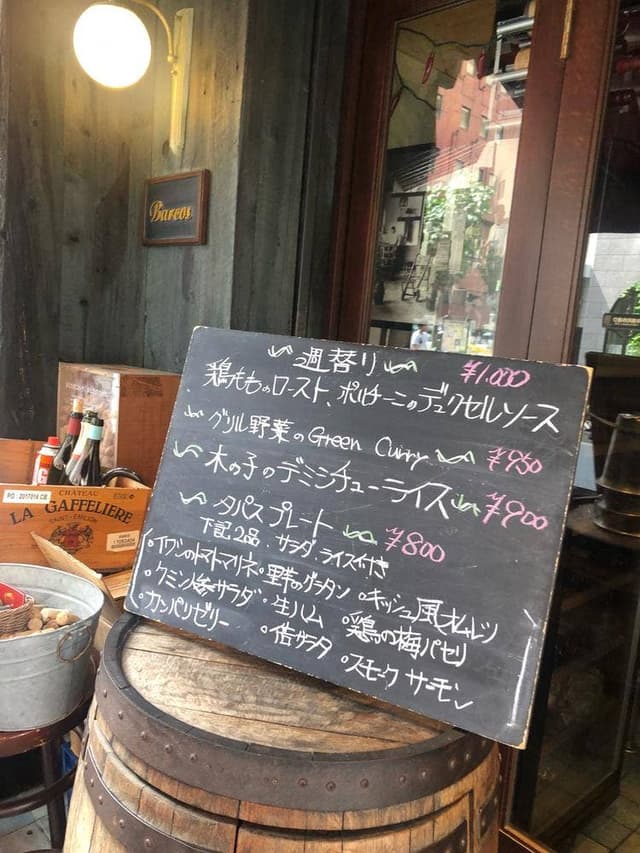 Barcos
週替り ¥1.000
鶏もものロースト、ポルチーニのデュクセルソース
グリル野菜のGreen Curry ¥950
木の子のデミシチューライス ¥900
タパスプレート ¥800
下記2品 サラダ ライス付き
・イワシのトマトマリネ ・野菜のグラタン ・キッシュ風オムレツ
・クミン サラダ ・生ハム ・鶏の梅パセリ
・カンパリゼリー ・サラダ ・スモークサーモン
PO: 2017016 CB
CHATEAU
LA GAFFELIERE
SAINT-EMILION